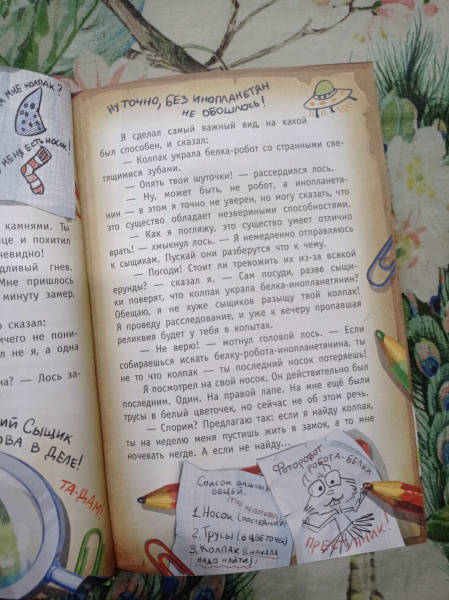 МНЕ КОЛПАК?
МЕНЯ ЕСТЬ НОСОК!
камнями. Ты
це и похитил
невидно!
дливый гнев.
Мне пришлось
минуту замер,
о сказал:
ичего не пони-
л не я, а одна
на? — Лось за-
ИЙ СЫЩИК
ОВА В ДЕЛЕ!
ТА-ДАМ!
НУ ТОЧНО, БЕЗ ИНОПЛАНЕТЯН
НЕ ОБОШЛОСЬ!
Я сделал самый важный вид, на какой
был способен, и сказал:
— Колпак украла белка-робот со странными све-
тящимися зубами.
— Опять твои шуточки! — рассердился лось.
— Ну, может быть, не робот, а инопланетя-
нин — в этом я точно не уверен, но могу сказать, что
это существо обладает незвериными способностями.
— Как я погляжу, это существо умеет отлично
врать! — хмыкнул лось. — Я немедленно отправляюсь
к сыщикам. Пускай они разберутся что к чему.
— Погоди! Стоит ли тревожить их из-за всякой
ерунды? — сказал я. — Сам посуди, разве сыщи-
ки поверят, что колпак украла белка-инопланетянин?
Обещаю, я не хуже сыщиков разыщу твой колпак!
Я проведу расследование, и уже к вечеру пропавшая
реликвия будет у тебя в копытах.
— Не верю! — мотнул головой лось. — Если
собираешься искать белку-робота-инопланетянина, ты
не то что колпак — ты последний носок потеряешь!
Я посмотрел на свой носок. Он действительно был
последним. Один. На правой лапе. На мне ещё были
трусы в белый цветочек, но сейчас не об этом речь.
— Спорим? Предлагаю так: если я найду колпак,
ты на неделю меня пустишь жить в замок, а то мне
ночевать негде. А если не найду...
СПИСОК ВАЖНЫХ
ВЕЩЕЙ
1. НОСОК (ПОСЛЕДНИЙ)
2. ТРУСЫ (В ЦВЕТОЧЕК)
3. КОЛПАК (СНАЧАЛА
НАДО НАЙТИ)!
ФОТОРОБОТ
РОБОТА-БЕЛКИ
ПРЕСТУПНИК!